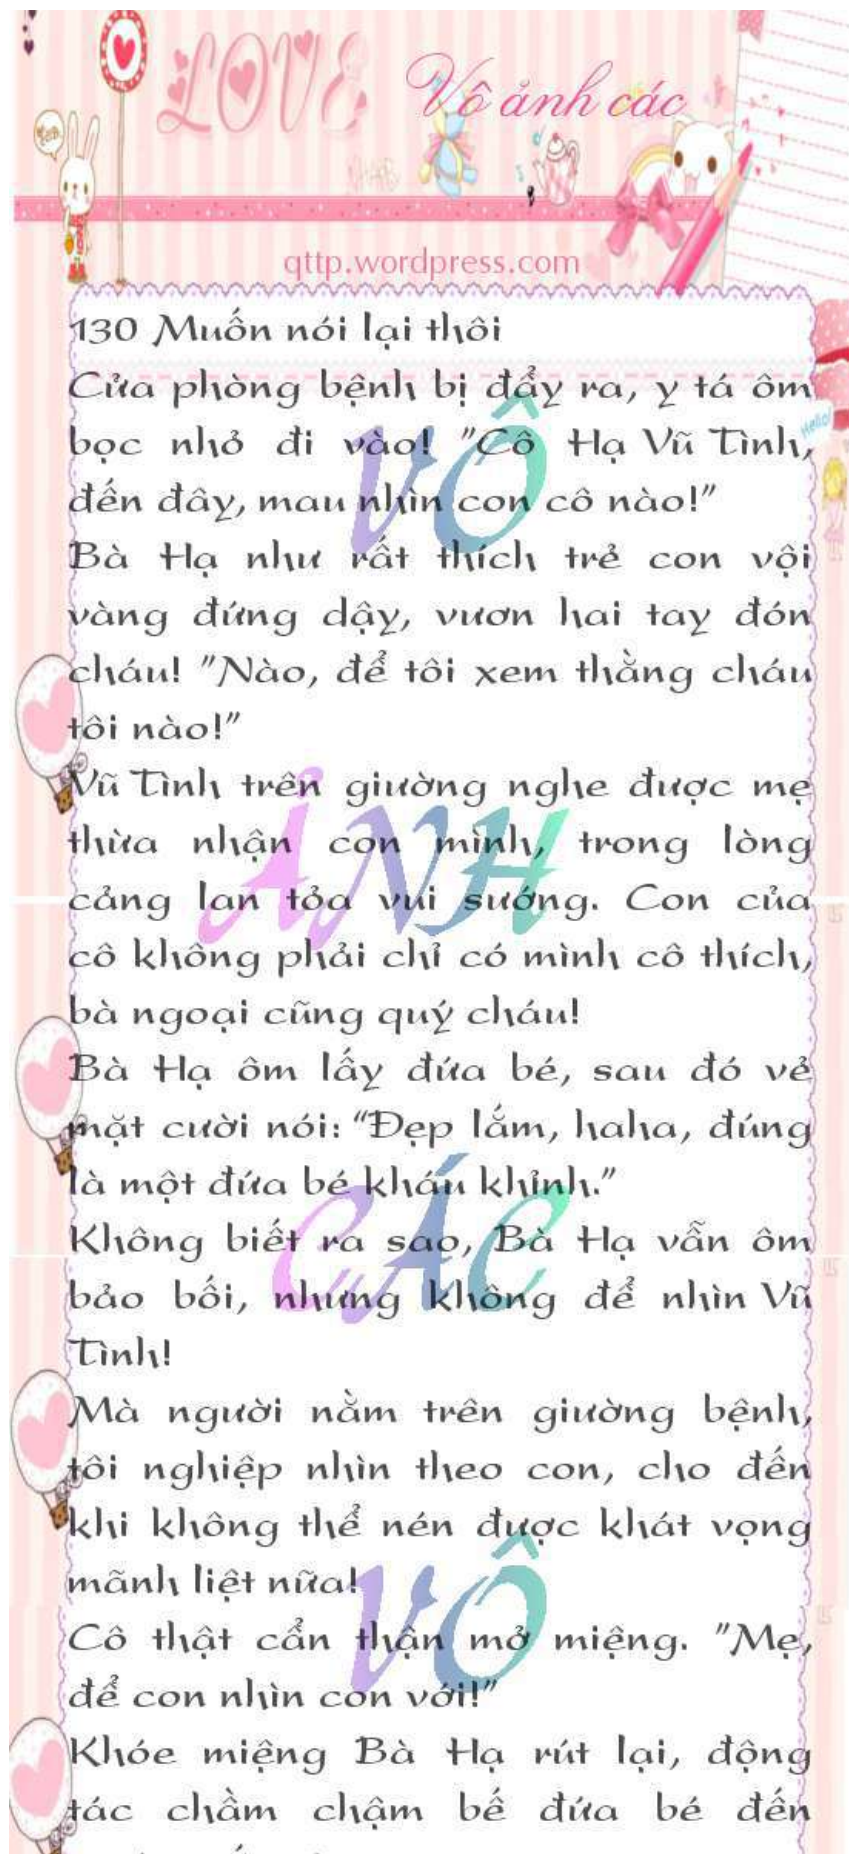 LOVE
Vô ảnh các
qttp.wordpress.com
130 Muốn nói lại thôi
Cửa phòng bệnh bị đẩy ra, y tá ôm
bọc nhỏ đi vào! "Cô Hạ Vũ Tình,
Hello!
đến đây, mau nhìn con cô nào!"
Bà Hạ như rất thích trẻ con vội
vàng đứng dậy, vươn hai tay đón
cháu! "Nào, để tôi xem thằng cháu
tôi nào!"
Vũ Tình trên giường nghe được mẹ
thừa nhận con mình, trong lòng
cảng lan tỏa vui sướng. Con của
cô không phải chỉ có mình cô thích,
bà ngoại cũng quý cháu!
Bà Hạ ôm lấy đứa bé, sau đó vẻ
mặt cười nói: “Đẹp lắm, haha, đúng
là một đứa bé kháu khỉnh.”
Không biết ra sao, Bà Hạ vẫn ôm
bảo bối, nhưng không để nhìn Vũ
Tình!
Mà người nằm trên giường bệnh,
tôi nghiệp nhìn theo con, cho đến
khi không thể nén được khát vọng
mãnh liệt nữa!
Cô thật cẩn thận mở miệng. "Mẹ,
để con nhìn con với!"
Khóe miệng Bà Hạ rút lại, động
tác chầm chậm bế đứa bé đến
VÔ
ẢNH
CÁC
VÔ